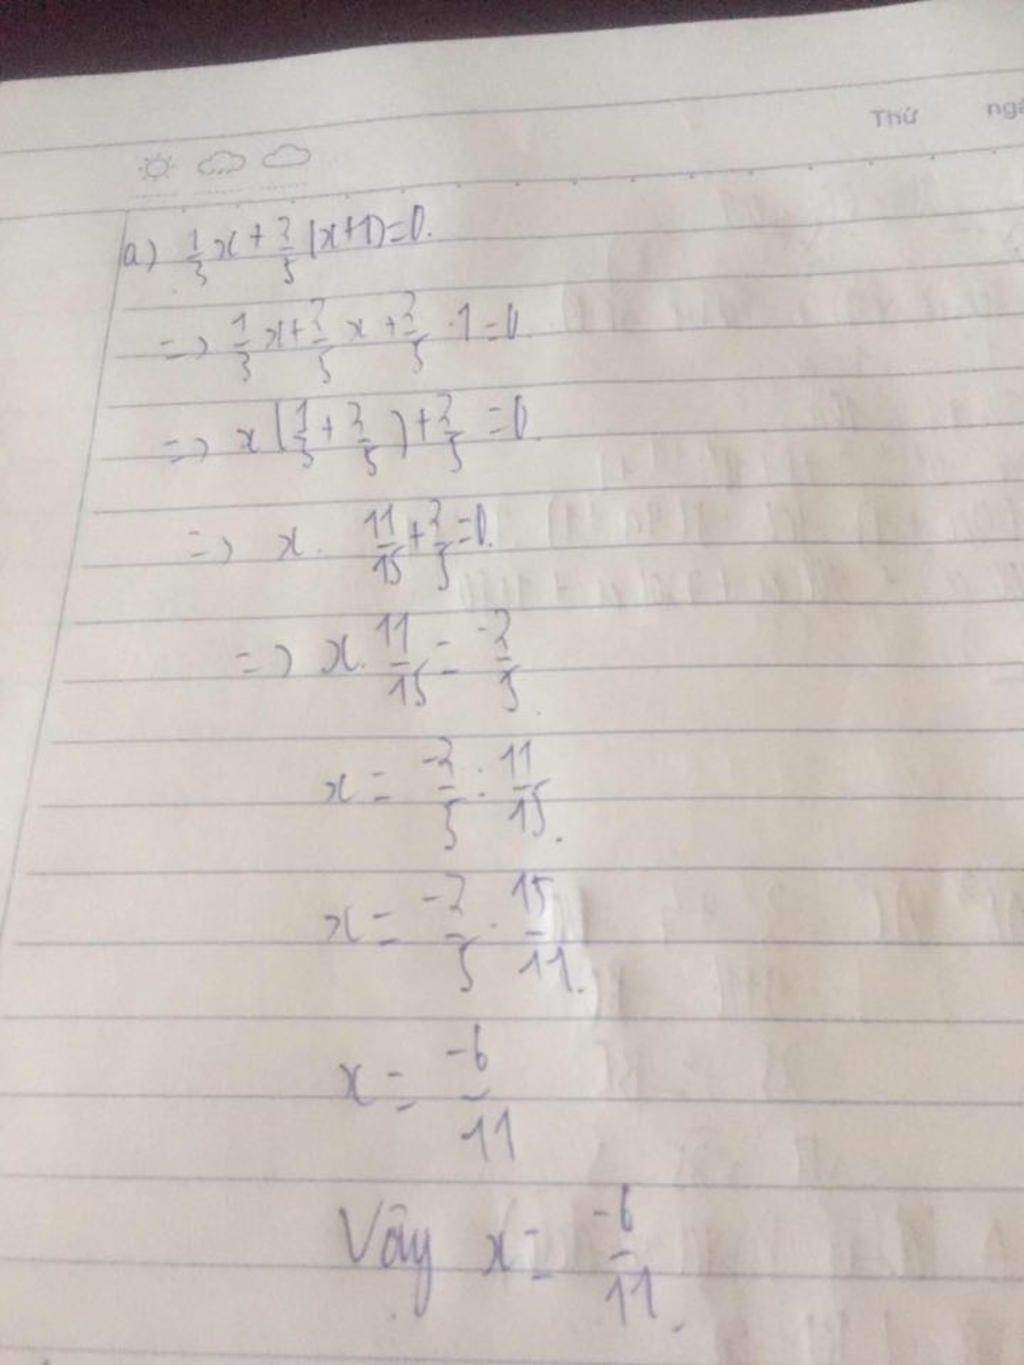 Thứ
a) 1/3 x + 2/5 (x+1)=0.
=> 1/3 x + 2/5 x + 2/5 . 1 = 0
=> x (1/3 + 2/5) + 2/5 = 0.
=> x . 11/15 + 2/5 = 0.
=> x . 11/15 = -2/5.
x = -2/5 : 11/15.
x = -2/5 . 15/11.
x = -6/11
Vậy x = -6/11.